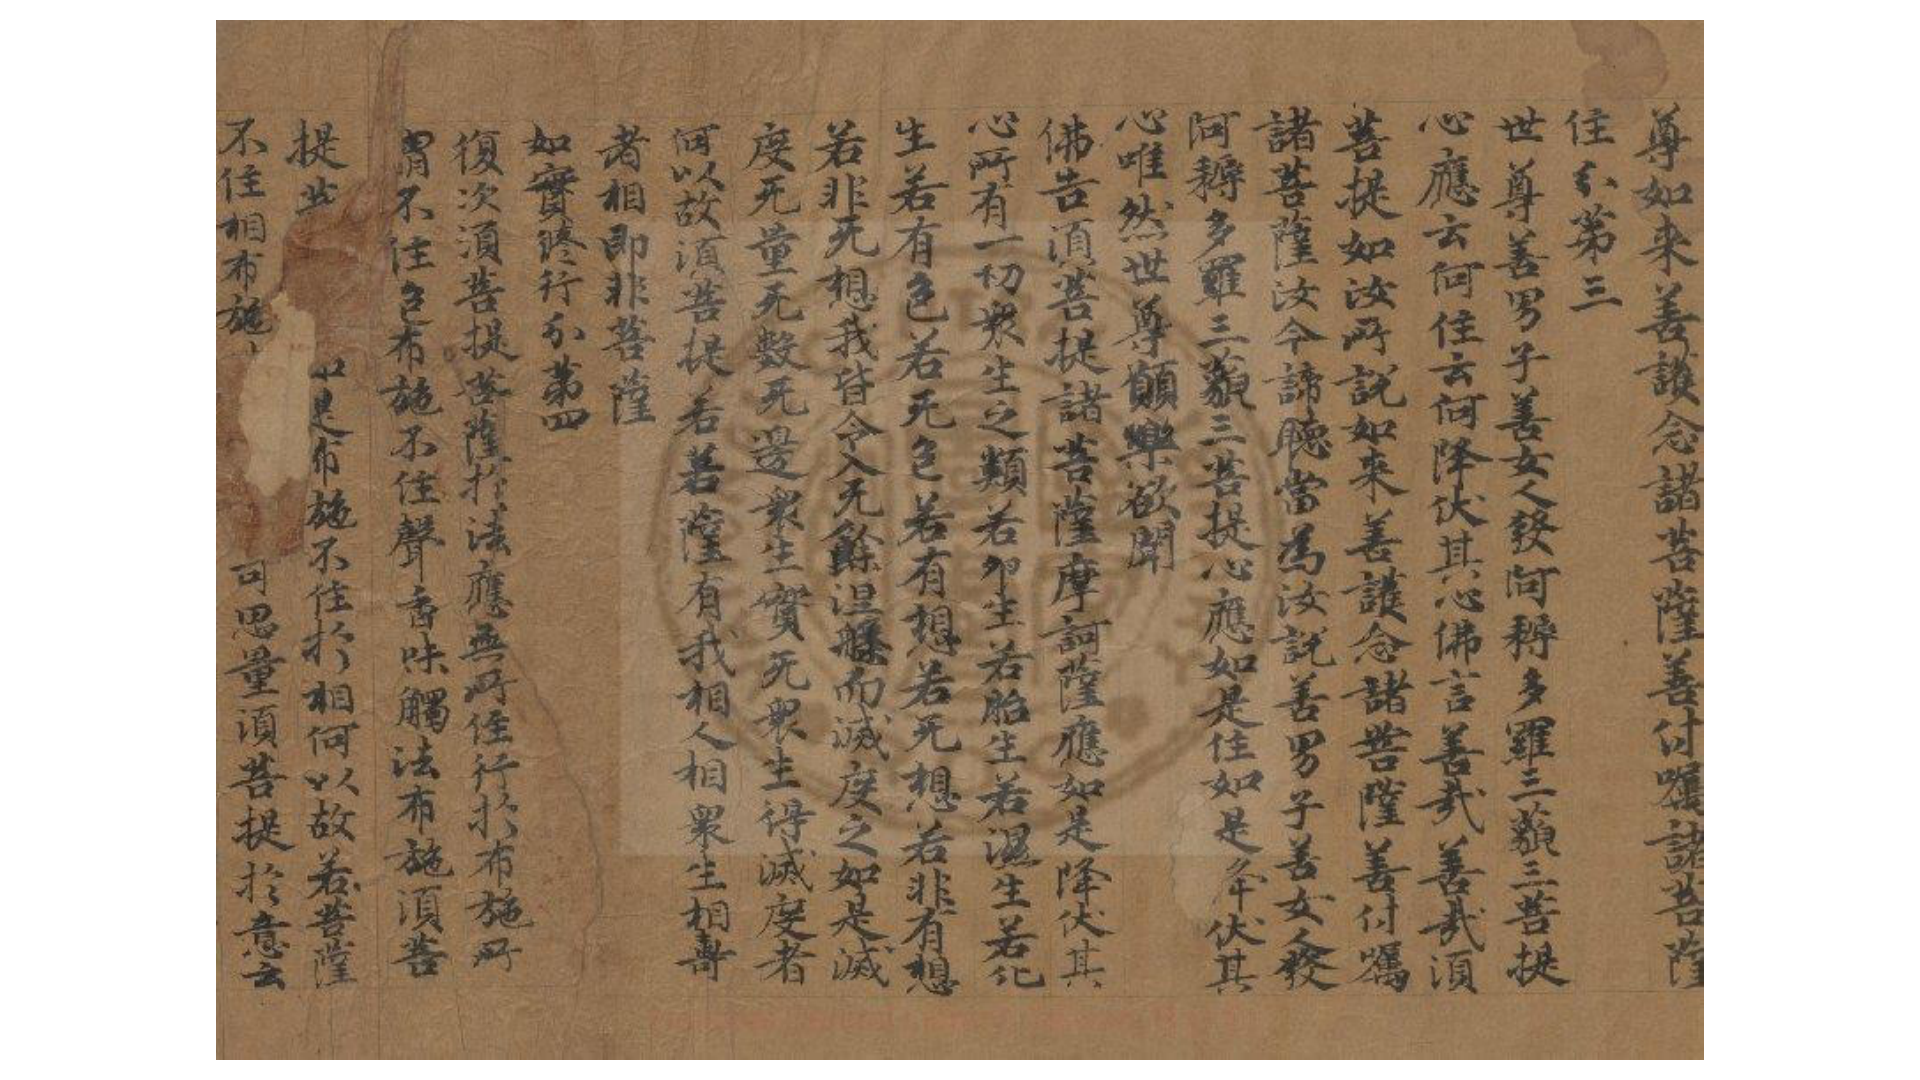 尊如來善護念諸菩薩善付囑諸菩薩
住分第三
世尊善男子善女人發阿耨多羅三藐三菩提
心應云何住云何降伏其心佛言善哉善哉須
菩提如汝所說如來善護念諸菩薩善付囑
諸菩薩汝今諦聽當為汝說善男子善女人發
阿耨多羅三藐三菩提心應如是住如是降伏其
心唯然世尊願樂欲聞
佛告須菩提諸菩薩摩訶薩應如是降伏其
心所有一切眾生之類若卵生若胎生若濕生若化
生若有色若无色若有想若无想若非有想
若非无想我皆令入无餘涅槃而滅度之如是滅
度无量无數无邊眾生實无眾生得滅度者
何以故須菩提若菩薩有我相人相眾生相壽
者相即非菩薩
如實修行分第四
復次須菩提菩薩於法應無所住行於布施所
謂不住色布施不住聲香味觸法布施須菩
提是布施不住於相何以故若菩薩
不住相布施可思量須菩提於意云